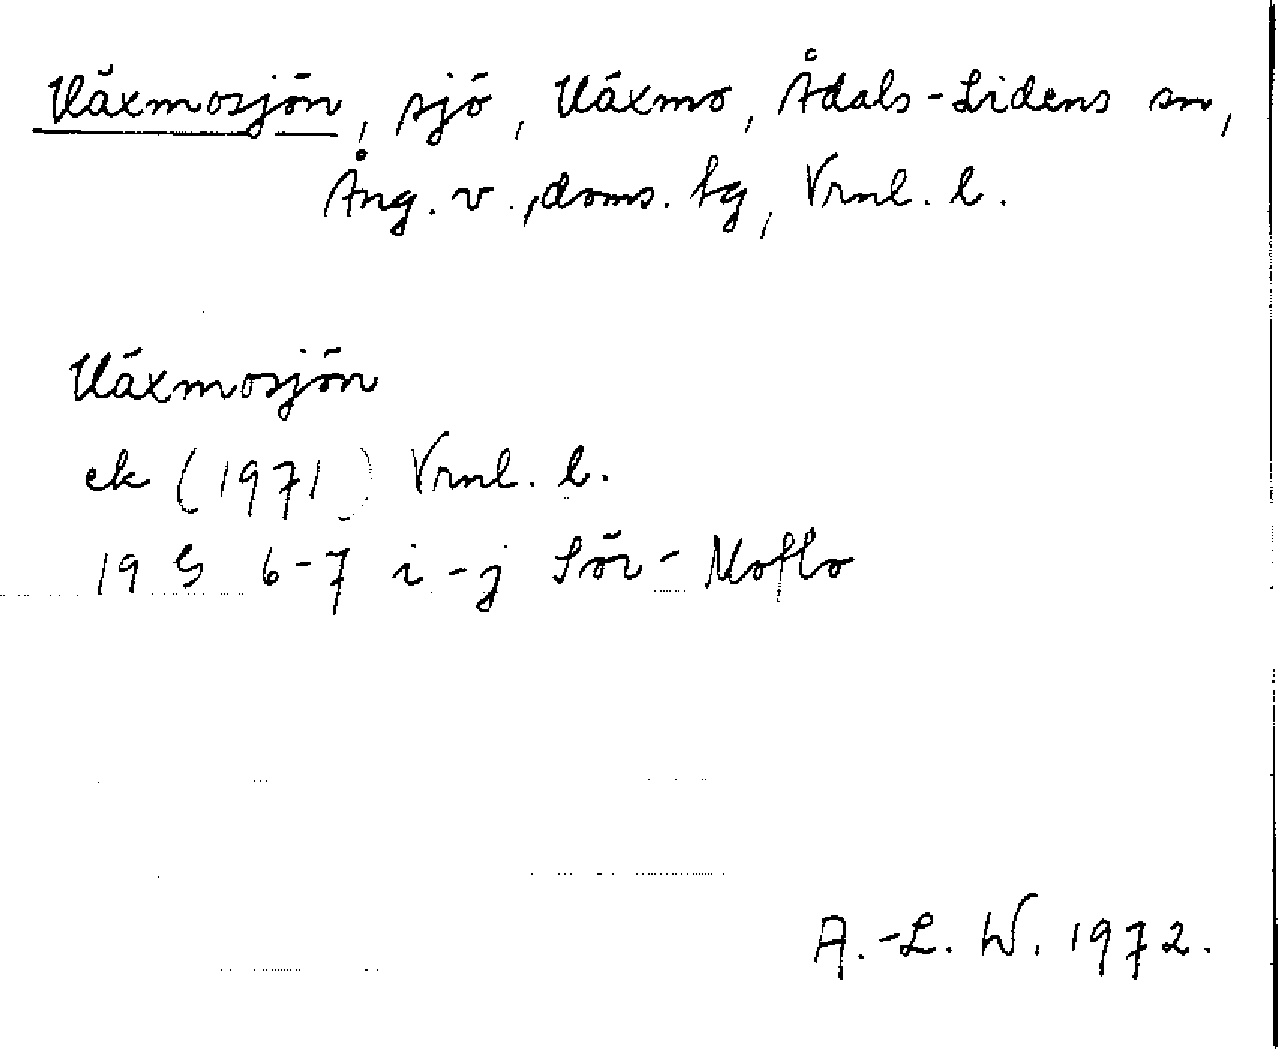 Växmosjön, sjö, Växmo, Ådals-Lidens sn,
Ång. v., doms. tg, Vrnl. l.
Växmosjön
ek (1971) Vrnl. l.
19 G 6-7 i-j Sör-Moflo
A.-L. W. 1972.